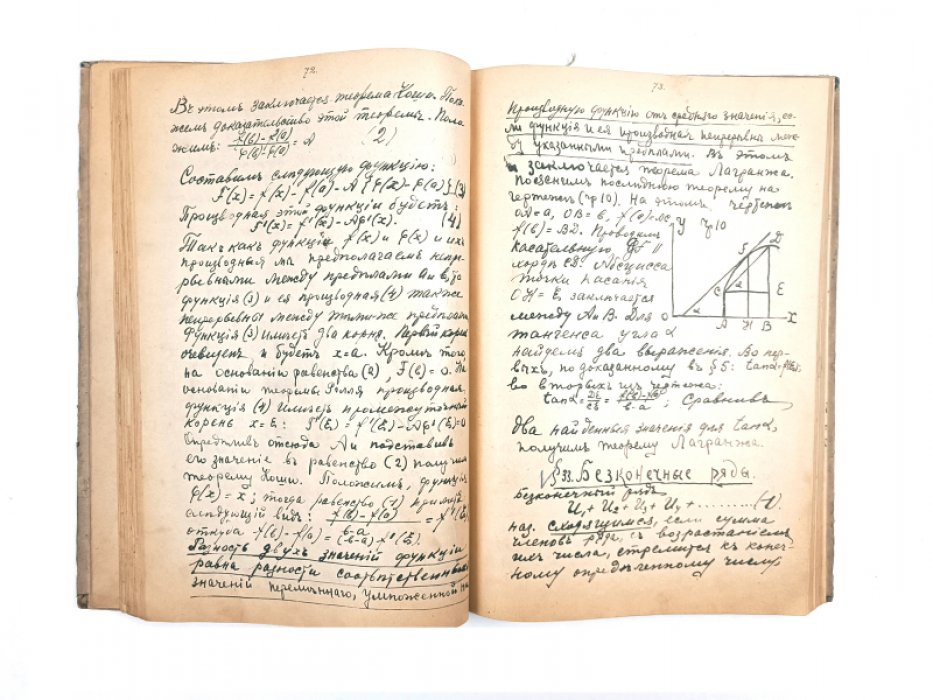 72.
Въ этомъ заключается теорема Коши. Пока-
жемъ доказательство этой теоремы. Поло-
жимъ: (f(b)-f(a))/(φ(b)-φ(a)) = A (2)
Составимъ слѣдующую функцію:
F(x) = f(x) - f(a) - A{φ(x) - φ(a)} (3)
Производная этой функціи будетъ:
F'(x) = f'(x) - Aφ'(x). (4)
Такъ какъ функціи f(x) и φ(x) и ихъ
производныя мы предполагаемъ непре-
рывными между предѣлами a и b, то
функція (3) и ея производная (4) также
непрерывны между тѣми-же предѣлами
Функція (3) имѣетъ два корня. Первый корень
очевиденъ и будетъ x=a. Кромѣ того,
на основаніи равенства (2), F(b) = 0. На
основаніи теоремы Ролля производная,
функція (4) имѣетъ промежуточный
корень x=ξ: F'(ξ) = f'(ξ) - Aφ'(ξ)=0
Опредѣливъ отсюда A и подставивъ
его значеніе въ равенство (2) получимъ
теорему Коши. Положимъ, функція
φ(x) = x; тогда равенство (1) приметъ
слѣдующій видъ: (f(b) - f(a))/(b-a) = f'(ξ)
откуда f(b) - f(a) = (b-a) f'(ξ).
Разность двухъ значеній функціи
равна разности соотвѣтственныхъ
значеній перемѣннаго, умноженной на
73.
производную функцію отъ средняго значенія, ес-
ли функція и ея производная непрерывны меж-
ду указанными предѣлами. Въ этомъ
и заключается теорема Лагранжа.
Поясенимъ послѣднюю теорему на
чертежѣ (чр 10). На этомъ чертежѣ
OA=a, OB=b, f(a)=AC,
f(b)=BD. Проводимъ
касательную ||
хордѣ CD. Абсцисса
точки касанія
OH=ξ, заключается
между A и B. Для
тангенса угла α
найдемъ два выраженія. Во пер-
выхъ, по доказанному въ §5: tanα=f'(ξ);
во вторыхъ изъ чертежа:
tanα = DE/CE = (f(b)-f(a))/(b-a); Сравнивъ
два найденныя значенія для tanα,
получимъ теорему Лагранжа.
Y чр 10
F D
C α E
O α A H B X
§ 33. Безконечные ряды.
Безконечный рядъ
U₁+U₂+U₃+U₄+.........(1)
наз. сходящимся, если сумма
членовъ ряда, съ возрастаніемъ
ихъ числа, стремится къ конеч-
ному опредѣленному числу,